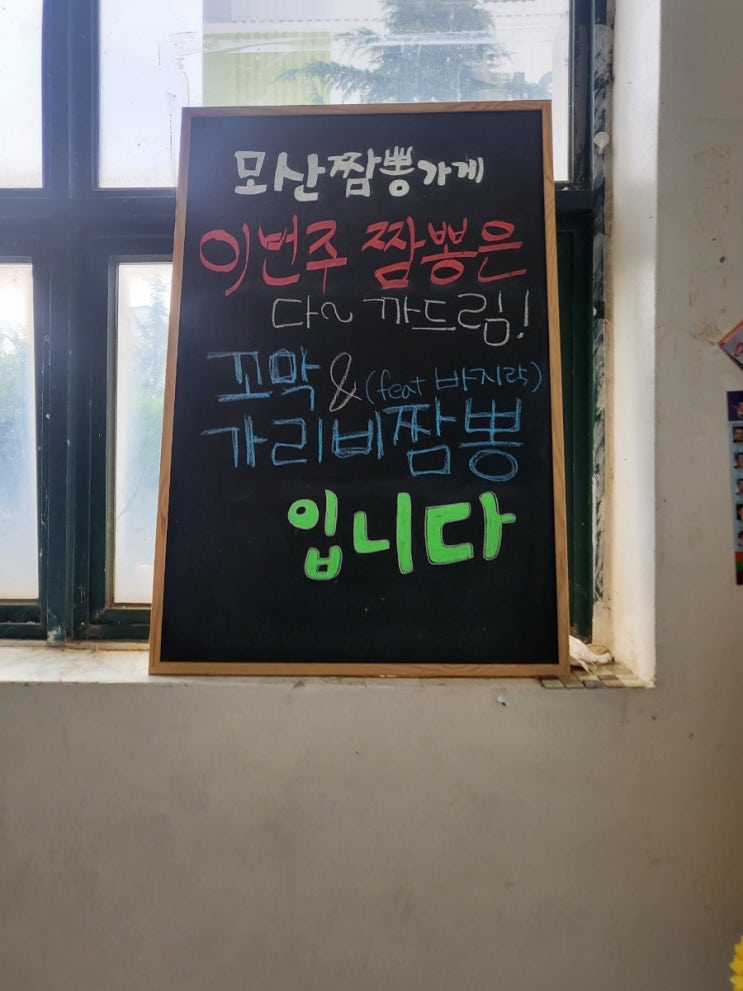 모산짬뽕가게
이번주 짬뽕은
다~ 까드림!
꼬막 & (feat 바지락)
가리비짬뽕
입니다